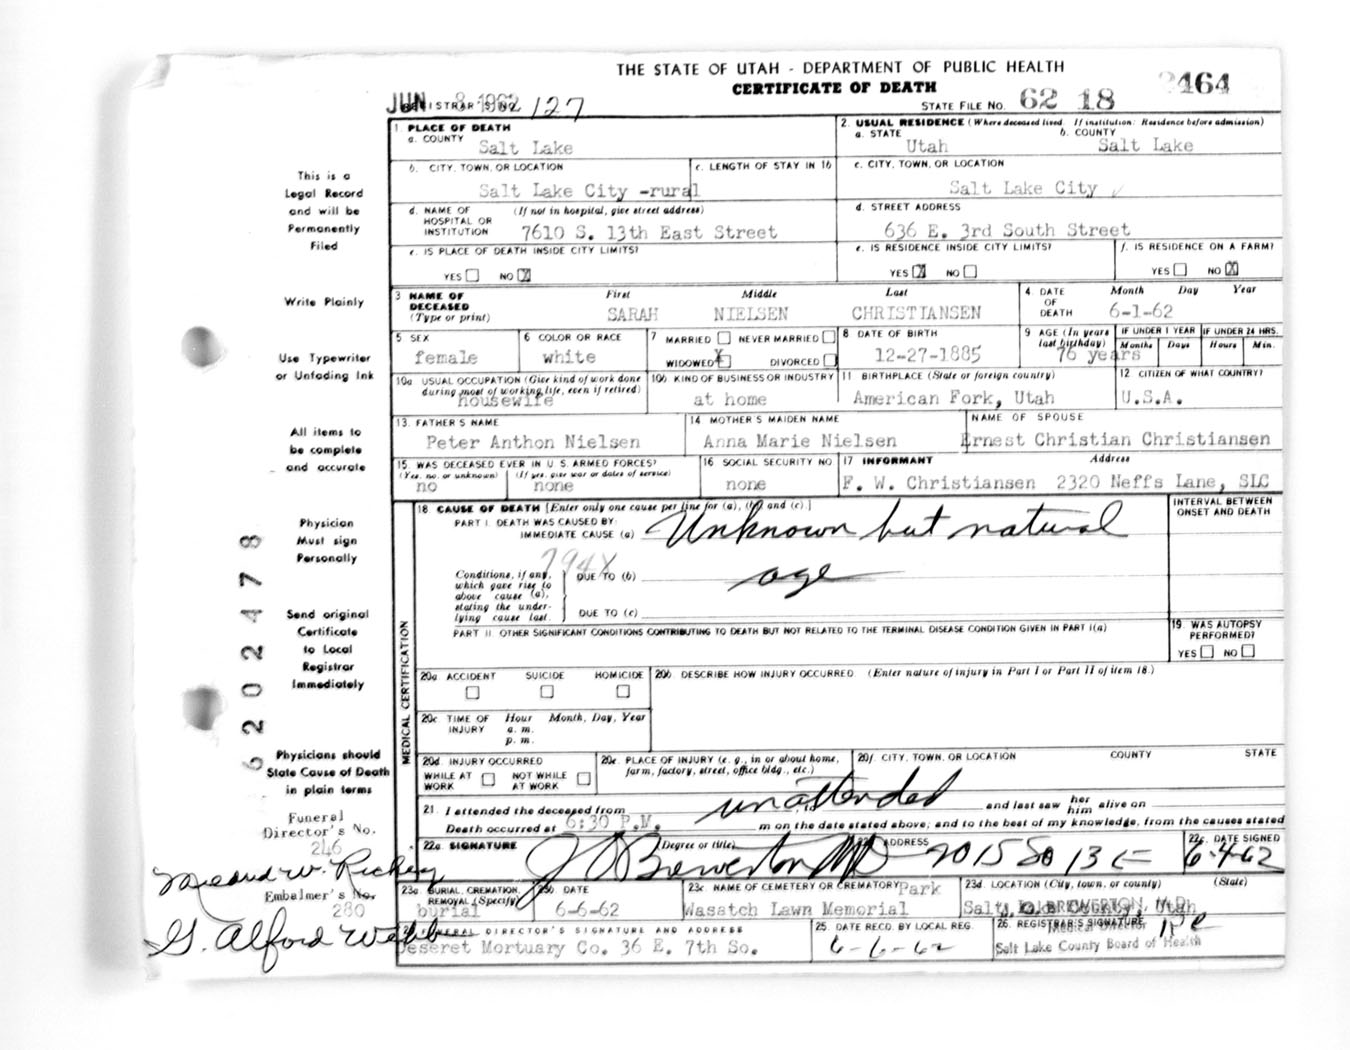 THE STATE OF UTAH - DEPARTMENT OF PUBLIC HEALTH
CERTIFICATE OF DEATH
464
JUN 8 1962 REGISTRAR'S NO. 127
STATE FILE NO. 62 18
1. PLACE OF DEATH
a. COUNTY Salt Lake
2. USUAL RESIDENCE (Where deceased lived. If institution: Residence before admission)
a. STATE Utah b. COUNTY Salt Lake
b. CITY, TOWN, OR LOCATION Salt Lake City -rural
c. LENGTH OF STAY IN 1b
c. CITY, TOWN, OR LOCATION Salt Lake City
d. NAME OF HOSPITAL OR INSTITUTION (If not in hospital, give street address) 7610 S. 13th East Street
d. STREET ADDRESS 636 E. 3rd South Street
e. IS PLACE OF DEATH INSIDE CITY LIMITS?
YES NO X
e. IS RESIDENCE INSIDE CITY LIMITS?
YES X NO
f. IS RESIDENCE ON A FARM?
YES NO X
3 NAME OF DECEASED (Type or print)
First Middle Last
SARAH NIELSEN CHRISTIANSEN
4. DATE OF DEATH Month Day Year
6-1-62
5 SEX female
6 COLOR OR RACE white
7 MARRIED NEVER MARRIED
WIDOWED X DIVORCED
8 DATE OF BIRTH 12-27-1885
9 AGE (In years last birthday) 76 years
IF UNDER 1 YEAR Months Days
IF UNDER 24 HRS. Hours Min.
10a USUAL OCCUPATION (Give kind of work done during most of working life, even if retired) housewife
10b KIND OF BUSINESS OR INDUSTRY at home
11 BIRTHPLACE (State or foreign country) American Fork, Utah
12 CITIZEN OF WHAT COUNTRY? U.S.A.
13. FATHER'S NAME Peter Anthon Nielsen
14 MOTHER'S MAIDEN NAME Anna Marie Nielsen
NAME OF SPOUSE Ernest Christian Christiansen
15. WAS DECEASED EVER IN U.S. ARMED FORCES?
(Yes, no, or unknown) (If yes, give war or dates of service)
no none
16 SOCIAL SECURITY NO none
17 INFORMANT Address
F. W. Christiansen 2320 Neffs Lane, SLC
18. CAUSE OF DEATH [Enter only one cause per line for (a), (b), and (c).]
INTERVAL BETWEEN ONSET AND DEATH
PART I. DEATH WAS CAUSED BY:
IMMEDIATE CAUSE (a) Unknown but natural
794X
Conditions, if any, which gave rise to above cause (a), stating the underlying cause last.
DUE TO (b) age
DUE TO (c)
PART II. OTHER SIGNIFICANT CONDITIONS CONTRIBUTING TO DEATH BUT NOT RELATED TO THE TERMINAL DISEASE CONDITION GIVEN IN PART I(a)
19. WAS AUTOPSY PERFORMED?
YES NO
MEDICAL CERTIFICATION
20a ACCIDENT SUICIDE HOMICIDE
20b. DESCRIBE HOW INJURY OCCURRED (Enter nature of injury in Part I or Part II of item 18.)
20c TIME OF INJURY Hour Month, Day, Year
a. m.
p. m.
20d. INJURY OCCURRED
WHILE AT WORK NOT WHILE AT WORK
20e. PLACE OF INJURY (e. g., in or about home, farm, factory, street, office bldg., etc.)
20f. CITY, TOWN, OR LOCATION COUNTY STATE
21. I attended the deceased from unattended and last saw her him alive on
Death occurred at 6:30 P.M. m on the date stated above; and to the best of my knowledge, from the causes stated
22a. SIGNATURE (Degree or title) J O Brewerton MD
ADDRESS 7015 So 13 E
22c. DATE SIGNED 6-4-62
23a BURIAL, CREMATION, REMOVAL (Specify) burial
DATE 6-6-62
23c. NAME OF CEMETERY OR CREMATORY Wasatch Lawn Memorial Park
23d. LOCATION (City, town, or county) (State)
Salt Lake County, Utah
FUNERAL DIRECTOR'S SIGNATURE AND ADDRESS
Deseret Mortuary Co. 36 E. 7th So.
25. DATE RECD. BY LOCAL REG. 6-6-62
26. REGISTRAR'S SIGNATURE
BREWERTON, M.D.
Medical Director
Salt Lake County Board of Health
This is a
Legal Record
and will be
Permanently
Filed
Write Plainly
Use Typewriter
or Unfading Ink
All items to
be complete
and accurate
Physician
Must sign
Personally
Send original
Certificate
to Local
Registrar
Immediately
Physicians should
State Cause of Death
in plain terms
Funeral
Director's No.
246
Embalmer's No.
280
G. Alford Webb
620202478